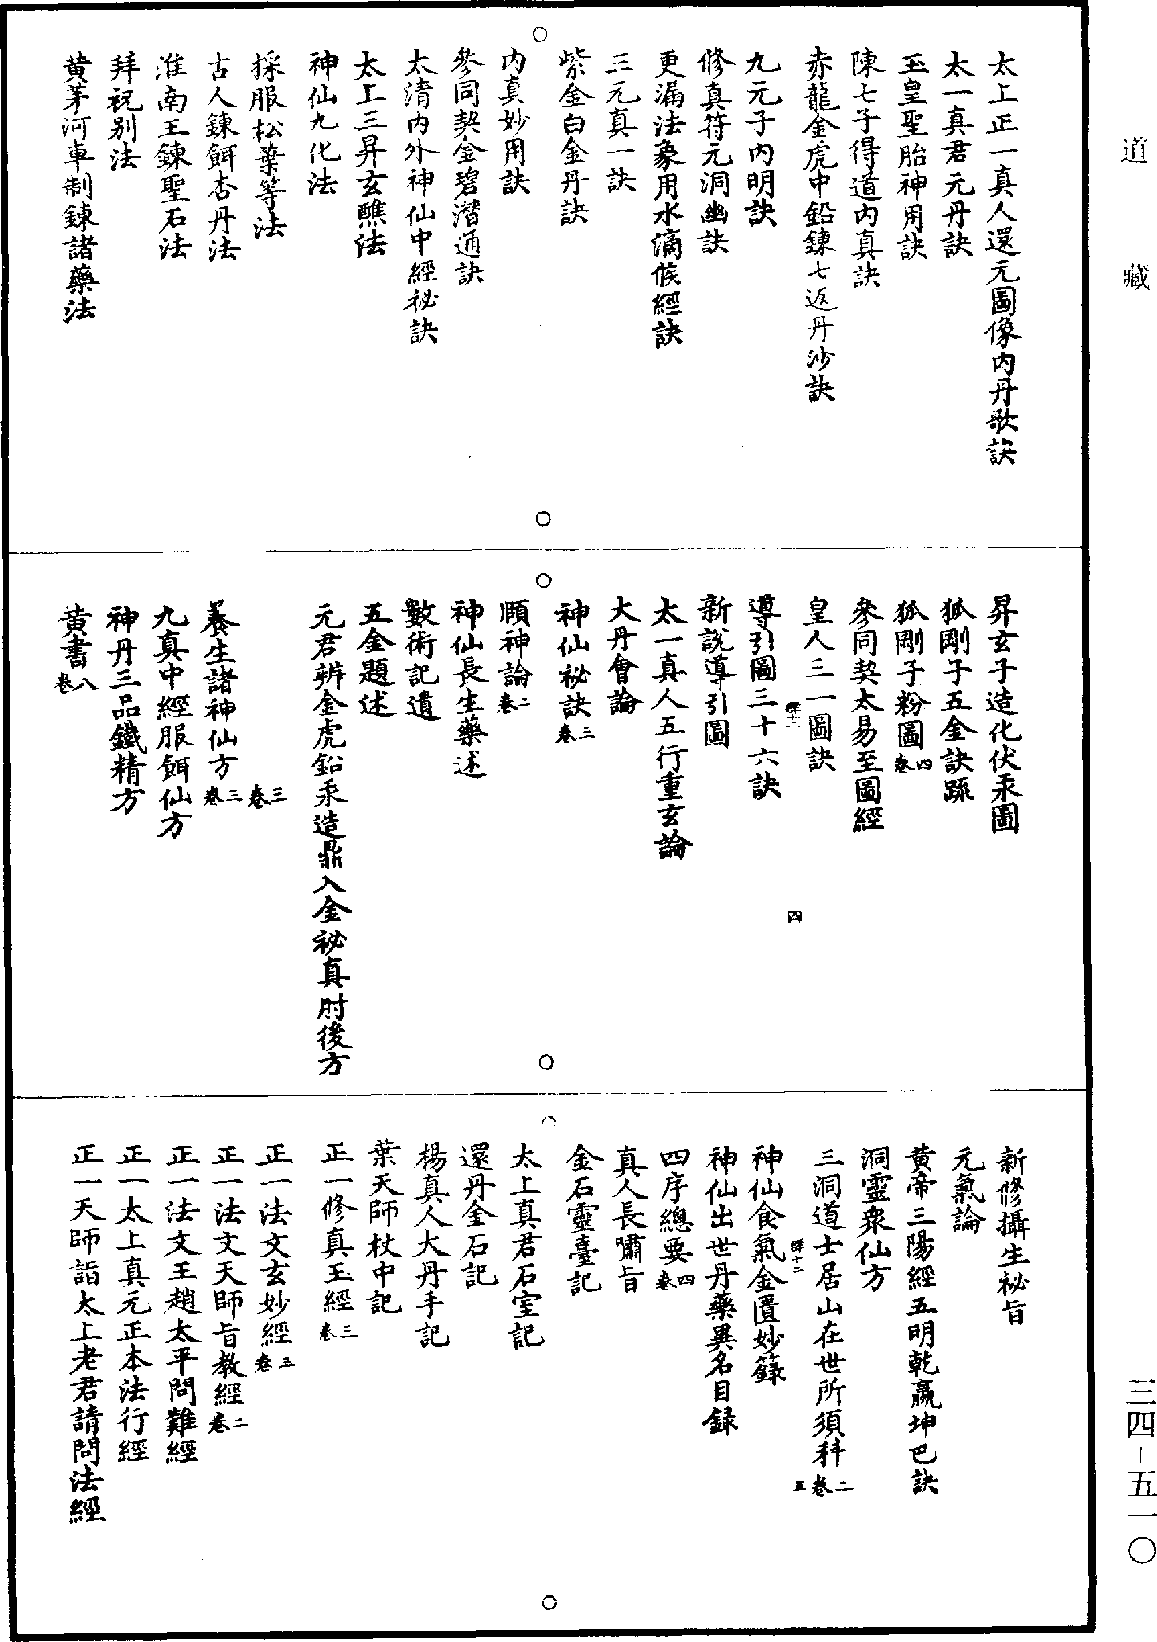 道藏
三四-五一〇
太上正一真人還元圖像內丹歌訣
太一真君元丹訣
玉皇聖胎神用訣
陳七子得道內真訣
赤龍金虎中鉛鍊七返丹沙訣
九元子內明訣
修真符元洞幽訣
更漏法象用水滴候經訣
三元真一訣
紫金白金丹訣
內真妙用訣
參同契金碧潛通訣
太清內外神仙中經祕訣
太上三昇玄醮法
神仙九化法
採服松葉等法
古人鍊餌杏丹法
淮南王鍊聖石法
拜祝別法
黃茅河車制鍊諸藥法
昇玄子造化伏汞圖
狐剛子五金訣疏
狐剛子粉圖四卷
參同契太易至圖經
皇人三一圖訣
四
導引圖三十六訣
新說導引圖
太一真人五行重玄論
大丹會論
神仙祕訣三卷
頤神論二卷
神仙長生藥述
數術記遺
五金題述
元君辨金虎鉛汞造鼎入金祕真肘後方
三卷
養生諸神仙方三卷
九真中經服餌仙方
神丹三品鐵精方
黃書八卷
新修攝生祕旨
元氣論
黃帝三陽經五明乾羸坤巴訣
洞靈衆仙方
三洞道士居山在世所須科二卷
五
神仙食氣金匱妙籙
神仙出世丹藥異名目録
四序總要四卷
真人長嘯旨
金石靈臺記
太上真君石室記
還丹金石記
楊真人大丹手記
葉天師杖中記
正一修真玉經三卷
正一法文玄妙經五卷
正一法文天師旨教經二卷
正一法文王趙太平問難經
正一太上真元正本法行經
正一天師詣太上老君請問法經